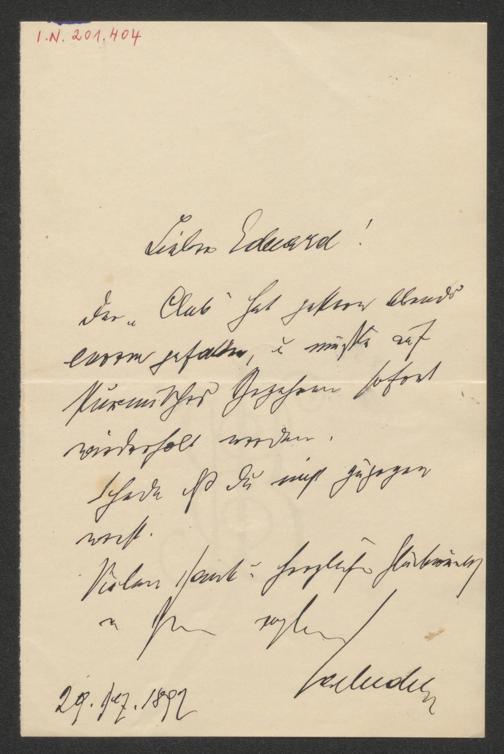 I.N. 201.404
Lieber Eduard!
Der „Club“ hat gestern Abends
enorm gefallen, u mußte auf
stürmisches Begehren sofort
wiederholt werden.
Schade daß Du nicht zugegen
warst.
Vielen Dank u herzliche Glückwünsche
29. Dez. 1892